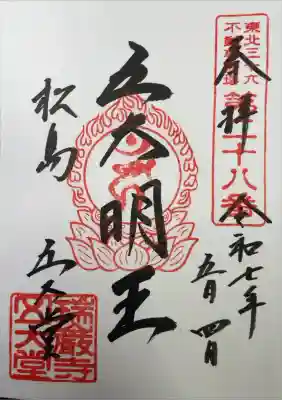 東北三十六
不動尊霊場
第二十八番
奉拝
令和七年
五月四日
五大明王
松島
五大堂
瑞巌寺
五大堂